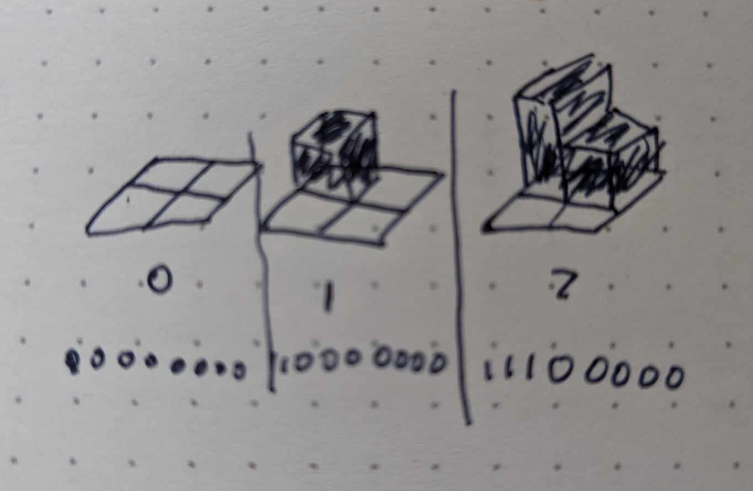 0 1 2
00000000 10000000 11100000